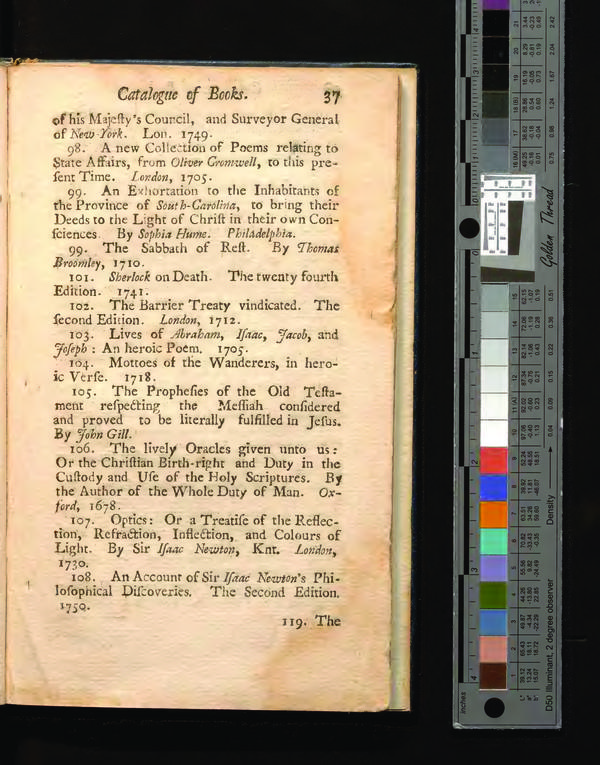 Catalogue of Books. 37
of his Majeſty's Council, and Surveyor General
of New York. Lon. 1749.
98. A new Collection of Poems relating to
State Affairs, from Oliver Cromwell, to this pre-
ſent Time. London, 1705.
99. An Exhortation to the Inhabitants of
the Province of South-Carolina, to bring their
Deeds to the Light of Chriſt in their own Con-
ſciences. By Sophia Hume. Philadelphia.
99. The Sabbath of Reſt. By Thomas
Broomley, 1710.
101. Sherlock on Death. The twenty fourth
Edition. 1741.
102. The Barrier Treaty vindicated. The
ſecond Edition. London, 1712.
103. Lives of Abraham, Iſaac, Jacob, and
Joſeph : An heroic Poem. 1705.
104. Mottoes of the Wanderers, in hero-
ic Verſe. 1718.
105. The Propheſies of the Old Teſta-
ment reſpecting the Meſſiah conſidered
and proved to be literally fulfilled in Jeſus.
By John Gill.
106. The lively Oracles given unto us :
Or the Chriſtian Birth-right and Duty in the
Cuſtody and Uſe of the Holy Scriptures. By
the Author of the Whole Duty of Man. Ox-
ford, 1678.
107. Optics : Or a Treatiſe of the Reflec-
tion, Refraction, Inflection, and Colours of
Light. By Sir Iſaac Newton, Knt. London,
1730.
108. An Account of Sir Iſaac Newton's Phi-
loſophical Diſcoveries. The Second Edition.
1750.
119. The
Golden Thread
D50 Illuminant, 2 degree observer
Density
inches